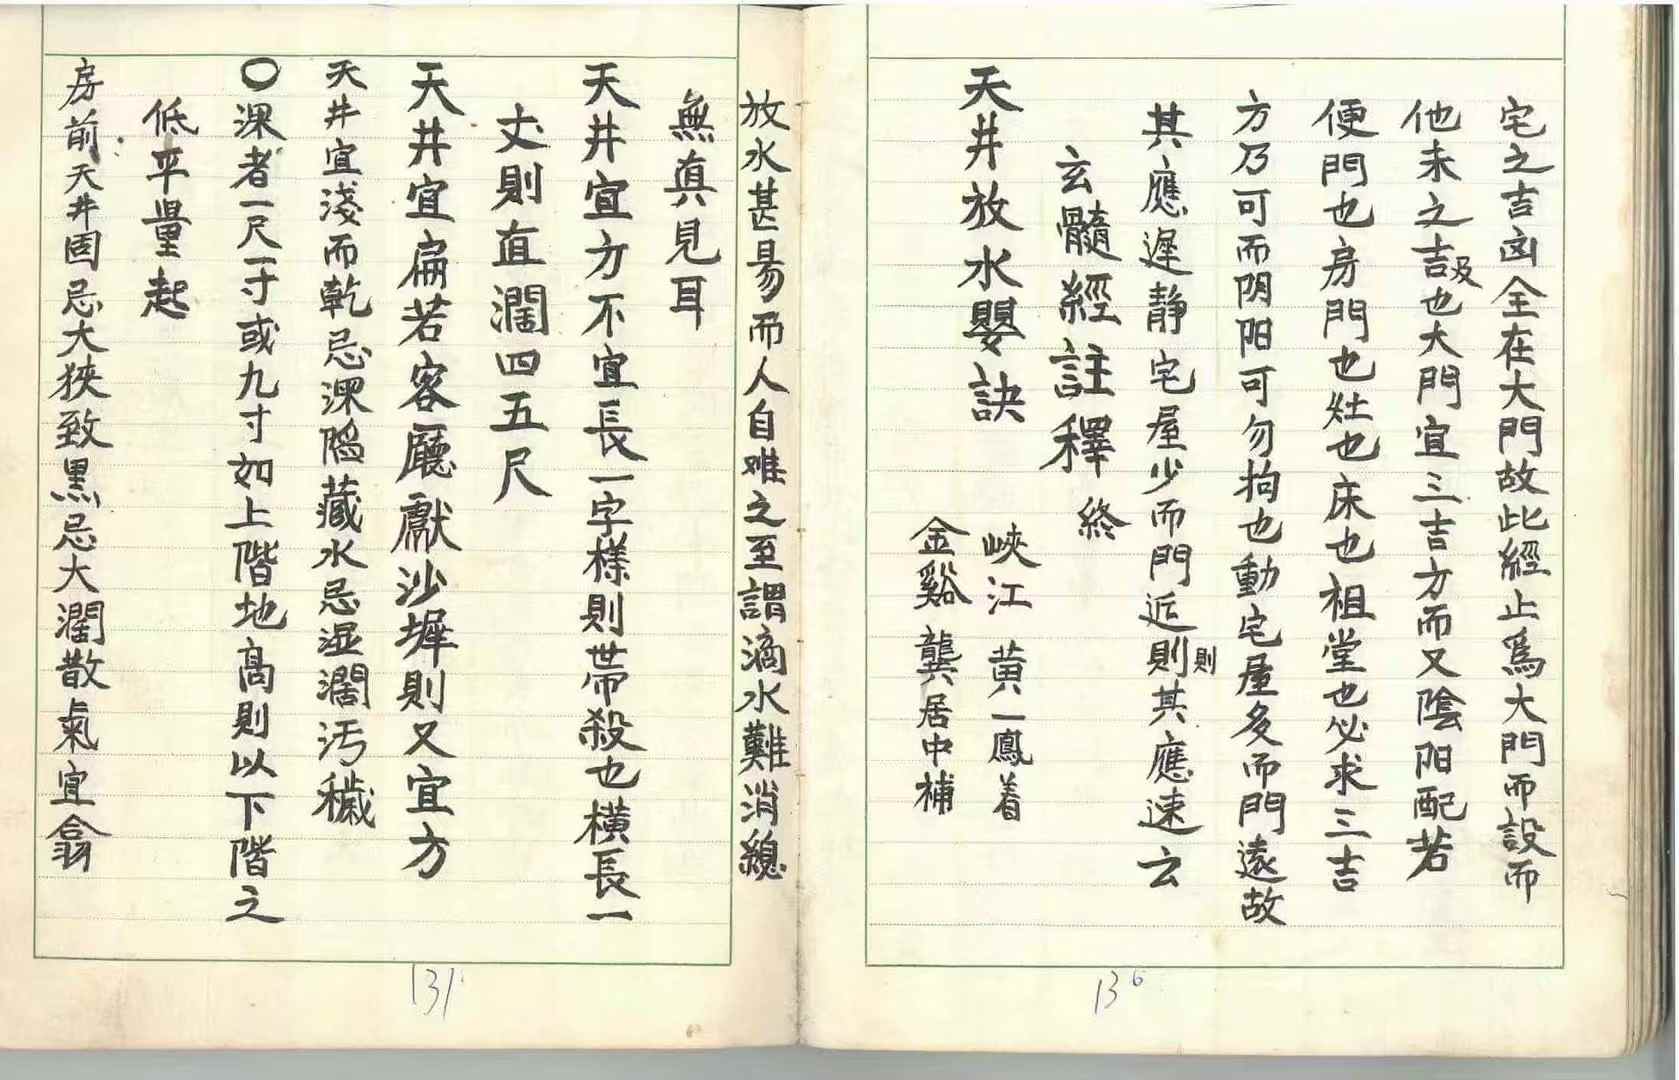 宅之吉凶全在大門故此經止爲大門而設而
他未之吉及也大門宜三吉方而又陰阳配若
便門也房門也灶也床也祖堂也必求三吉
方乃可而阴阳可勿拘也動宅屋多而門遠故
其應遲静宅屋少而門近則則其應速云
玄髓經註釋終
峽江黄一鳳着
金谿龔居中補
天井放水嬰訣
136
放水甚易而人自难之至謂滴水難消總
無真見耳
天井宜方不宜長一字樣則带殺也横長一
丈則直濶四五尺
天井宜扁若客廳獻沙墀則又宜方
天井宜淺而乾忌深陷藏水忌湿濶汚穢
〇深者一尺一寸或九寸如上階地高則以下階之
低平量起
房前天井固忌大狹致黑忌大濶散氣宜翕
131